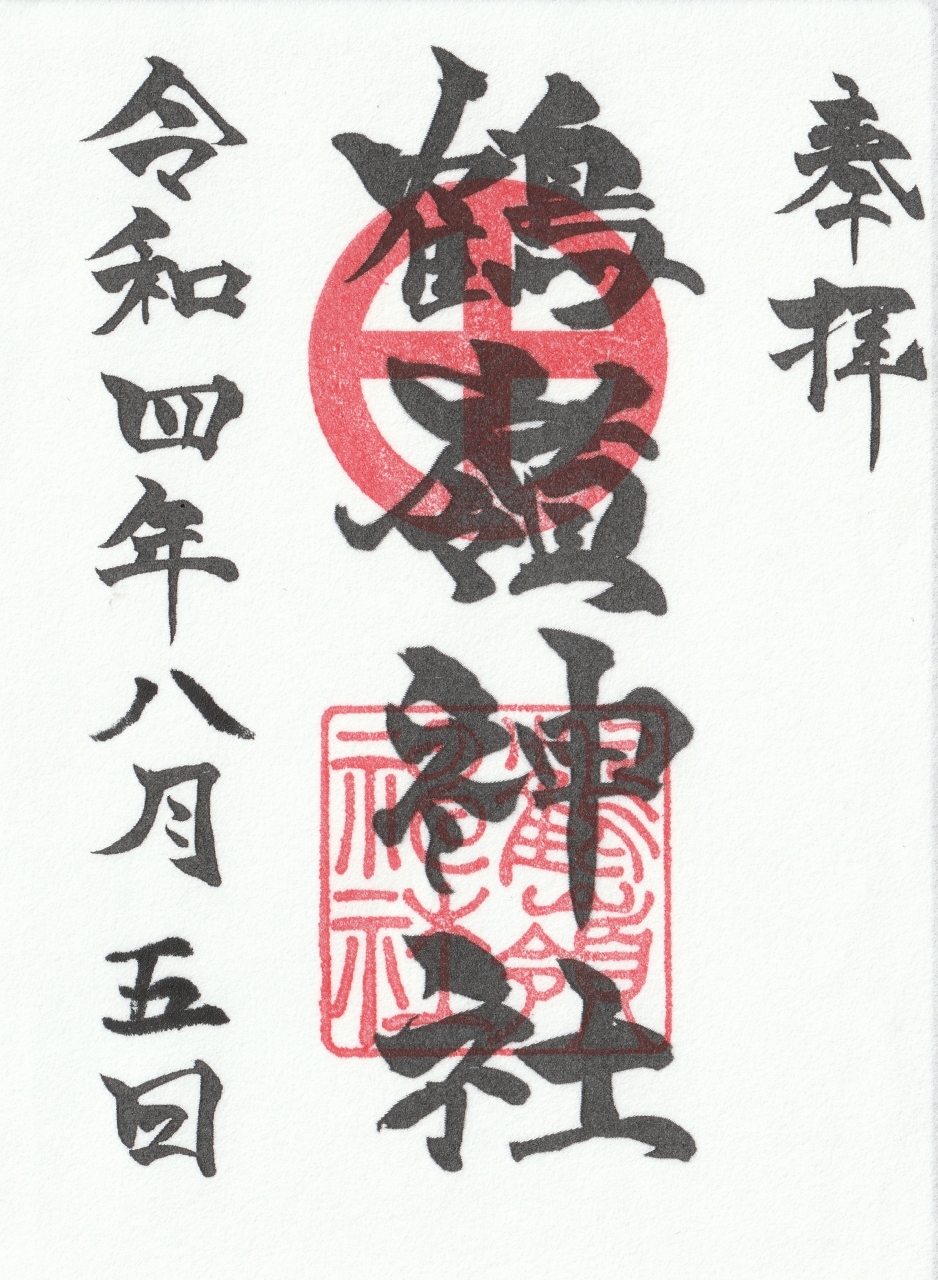 奉拝
鶴嶺神社
令和四年八月五日
鶴嶺
神社